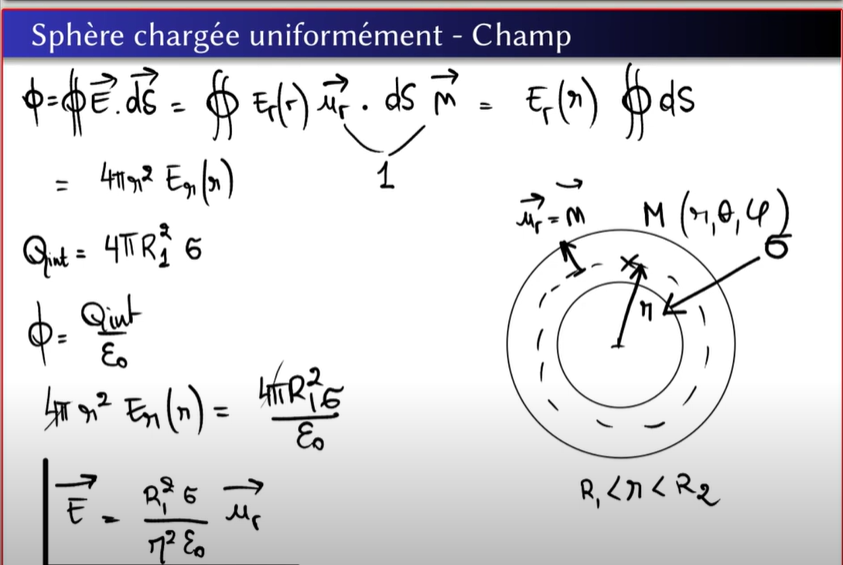 Sphère chargée uniformément - Champ
ϕ = ∯ E⃗ . dS⃗ = ∯ Er(r) u⃗r . dS n⃗ = Er(r) ∯ dS
1
= 4πr² Er(r)
Qint = 4πR₁² σ
ϕ = Qint / ε₀
4π r² Er(r) = 4πR₁²σ / ε₀
E⃗ = R₁² σ / r² ε₀ u⃗r
u⃗r = n⃗ M (r, θ, φ)
σ
r
R₁ < r < R₂